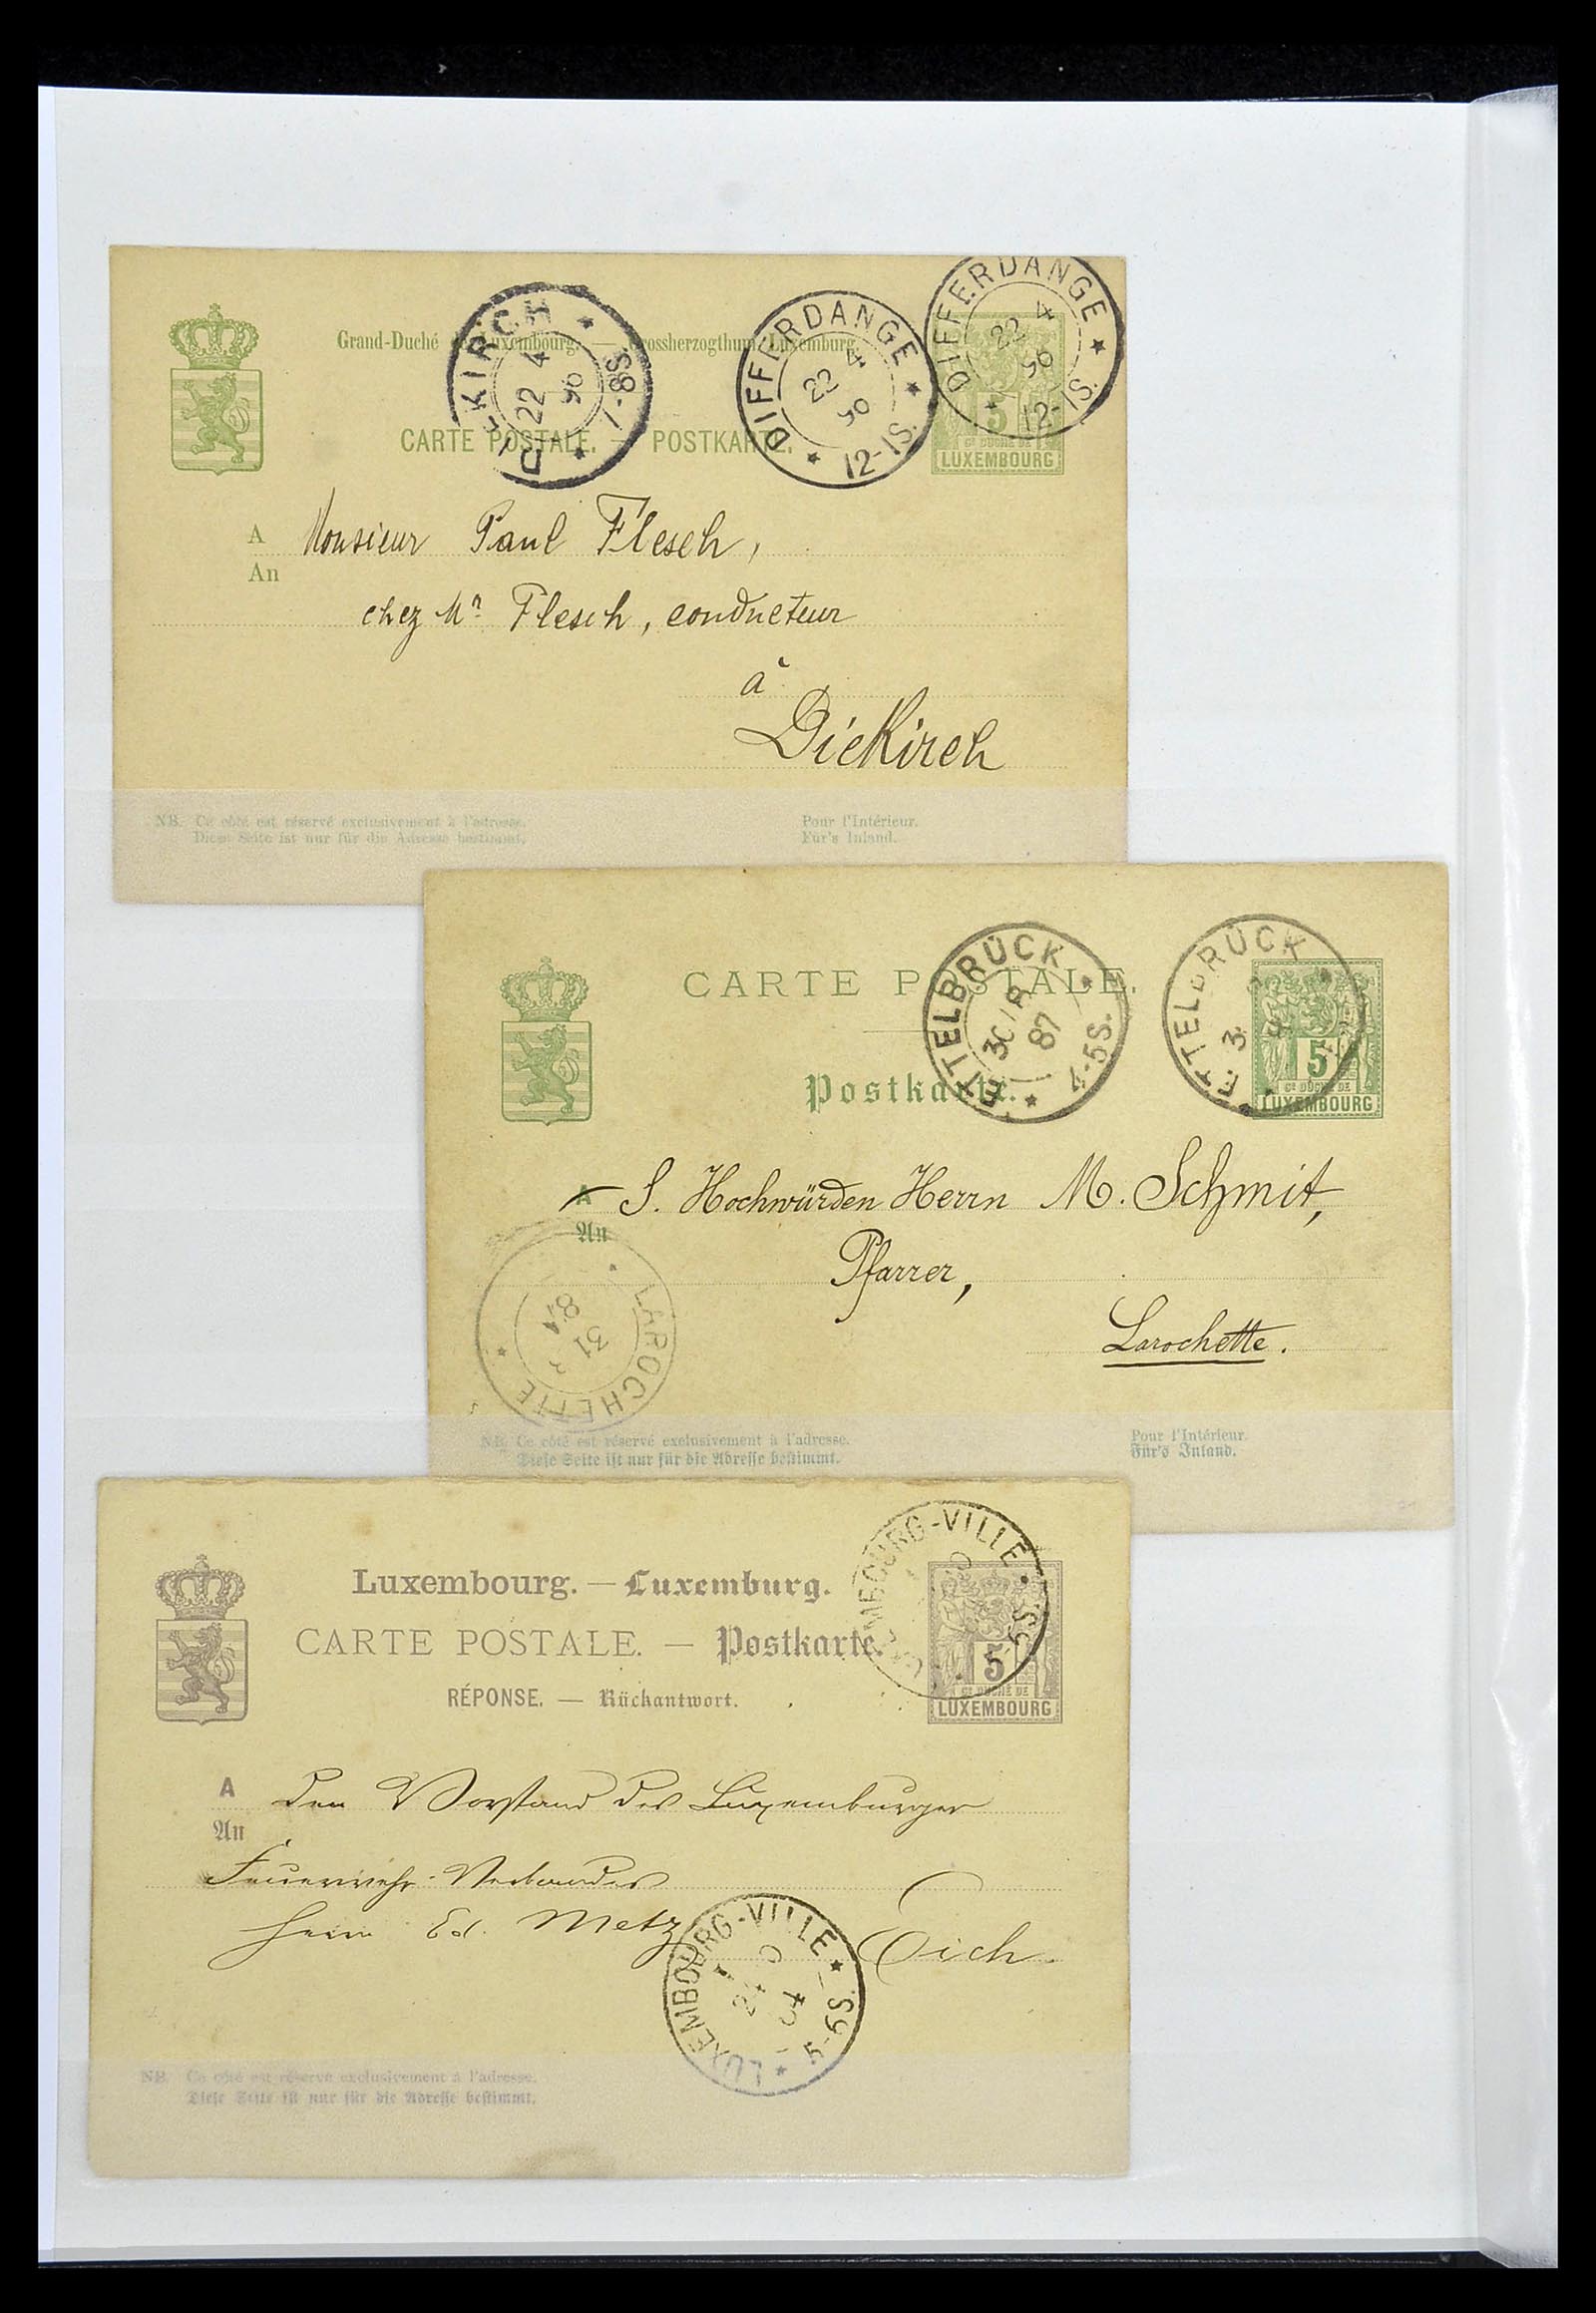 Grand-Duché de Luxembourg. — Grossherzogthum Luxemburg.
CARTE POSTALE. — POSTKARTE.
DIEKIRCH
22 4
96
7-8S
DIFFERDANGE
22 4
96
12-1S.
DIFFERDANGE
22 4
96
12-1S.
5
GD DUCHÉ DE
LUXEMBOURG
A Monsieur Paul Flesch,
An
chez Mr Flesch, conducteur
à
Diekirch
NB. Ce côté est réservé exclusivement à l'adresse.
Diese Seite ist nur für die Adresse bestimmt.
Pour l'Intérieur.
Für's Inland.
CARTE POSTALE.
Postkarte.
ETTELBRÜCK
30
87
4-5S.
ETTELBRÜCK
5
GD DUCHÉ DE
LUXEMBOURG
A S. Hochwürden Herrn M. Schmit,
An
Pfarrer,
Larochette.
LAROCHETTE
31
NB. Ce côté est réservé exclusivement à l'adresse.
Diese Seite ist nur für die Adresse bestimmt.
Pour l'Intérieur.
Für's Inland.
Luxembourg. — Luxemburg.
CARTE POSTALE. — Postkarte.
RÉPONSE. — Rückantwort.
LUXEMBOURG-VILLE
5
GD DUCHÉ DE
LUXEMBOURG
A den Vorstand des Luxemburger
An
Feuerwehr-Verbandes
Herrn Ed. Metz
Eich.
LUXEMBOURG-VILLE
5-6S
NB. Ce côté est réservé exclusivement à l'adresse.
Diese Seite ist nur für die Adresse bestimmt.